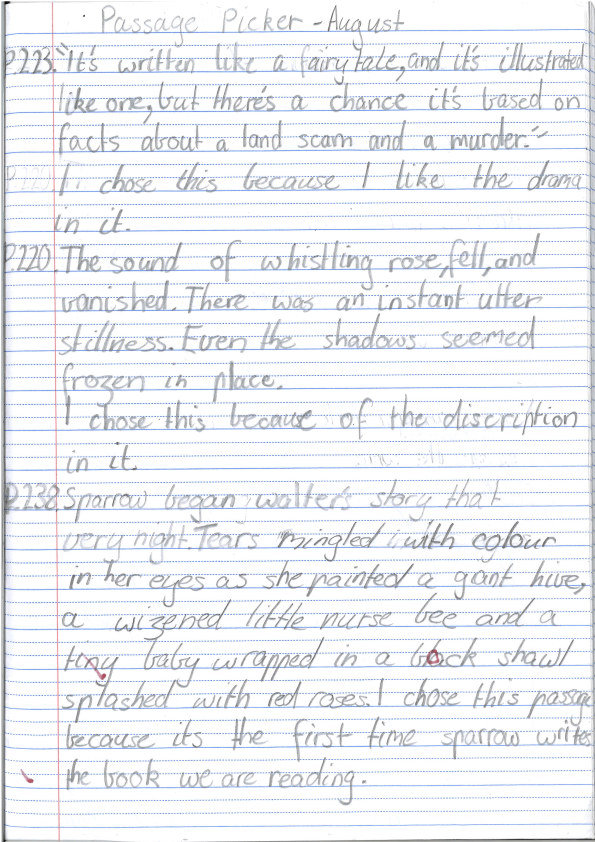 Passage Picker - August
P.223. "It's written like a fairytale, and it's illustrated
like one, but there's a chance it's based on
facts about a land scam and a murder."
I chose this because I like the drama
in it.
P.220. The sound of whistling rose, fell, and
vanished. There was an instant utter
stillness. Even the shadows seemed
frozen in place.
I chose this because of the discription
in it.
P.238 Sparrow began walter's story that
very night. Tears mingled with colour
in her eyes as she painted a giant hive,
a wizened little nurse bee and a
tiny baby wrapped in a black shawl
splashed with red roses. I chose this passage
because its the first time sparrow writes
the book we are reading.